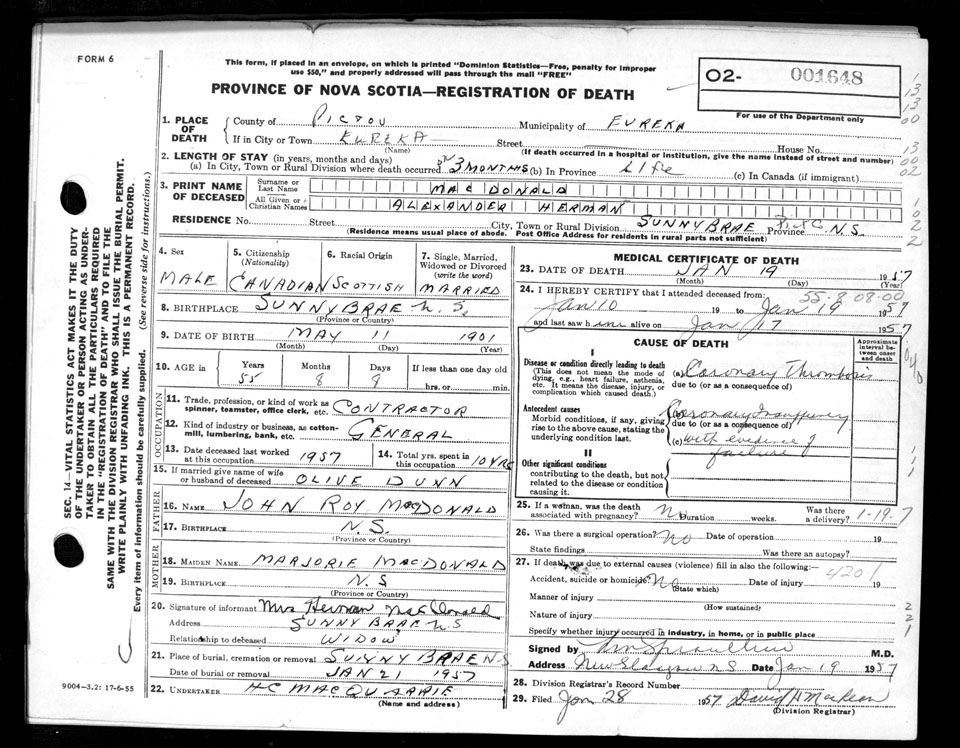 FORM 6
This form, if placed in an envelope, on which is printed "Dominion Statistics—Free, penalty for improper
use $50," and properly addressed will pass through the mail "FREE"
PROVINCE OF NOVA SCOTIA—REGISTRATION OF DEATH
O2- 001648
For use of the Department only
1. PLACE OF DEATH
County of PICTOU Municipality of EUREKA
If in City or Town EUREKA Street House No.
(Name) (If death occurred in a hospital or institution, give the name instead of street and number)
2. LENGTH OF STAY (in years, months and days)
(a) In City, Town or Rural Division where death occurred 3 MONTHS (b) In Province Life (c) In Canada (if immigrant)
3. PRINT NAME OF DECEASED
Surname or Last Name MACDONALD
All Given or Christian Names ALEXANDER HERMAN
RESIDENCE No. Street City, Town or Rural Division SUNNYBRAE Pict Co Province N.S.
(Residence means usual place of abode. Post Office Address for residents in rural parts not sufficient)
4. Sex
MALE
5. Citizenship
(Nationality)
CANADIAN
6. Racial Origin
SCOTTISH
7. Single, Married,
Widowed or Divorced
(write the word)
MARRIED
8. BIRTHPLACE SUNNYBRAE N.S.
(Province or Country)
9. DATE OF BIRTH MAY 11 1901
(Month) (Day) (Year)
10. AGE in Years Months Days If less than one day old
55 8 8 hrs. or min.
OCCUPATION
11. Trade, profession, or kind of work as
spinner, teamster, office clerk, etc. CONTRACTOR
12. Kind of industry or business, as cotton-
mill, lumbering, bank, etc. GENERAL
13. Date deceased last worked
at this occupation 1957
14. Total yrs. spent in
this occupation 10 YRS
15. If married give name of wife
or husband of deceased OLIVE DUNN
FATHER
16. NAME JOHN ROY MACDONALD
17. BIRTHPLACE N.S.
(Province or Country)
MOTHER
18. MAIDEN NAME MARJORIE MACDONALD
19. BIRTHPLACE N.S
(Province or Country)
20. Signature of informant Mrs Herman MacDonald
Address SUNNY BRAE N S
Relationship to deceased WIDOW
21. Place of burial, cremation or removal SUNNY BRAE N.S.
Date of burial or removal JAN 21 1957
22. UNDERTAKER H C MACQUARRIE
(Name and address)
MEDICAL CERTIFICATE OF DEATH
23. DATE OF DEATH JAN 19 1957
(Month) (Day) (Year)
55-8 08-00
24. I HEREBY CERTIFY that I attended deceased from
Jan 10 19 to Jan 19 1957
and last saw him alive on Jan 17 1957
CAUSE OF DEATH
Approximate
interval be-
tween onset
and death
I
Disease or condition directly leading to death
(This does not mean the mode of
dying, e.g., heart failure, asthenia,
etc. It means the disease, injury, or
complication which caused death.)
(a) Coronary Thrombosis
due to (or as a consequence of)
Antecedent causes
Morbid conditions, if any, giving
rise to the above cause, stating the
underlying condition last.
Coronary Insufficiency
due to (or as a consequence of)
(c) with evidence of
failure
II
Other significant conditions
contributing to the death, but not
related to the disease or condition
causing it.
25. If a woman, was the death
associated with pregnancy? No Duration weeks. Was there
a delivery? 1-19-7
26. Was there a surgical operation? No Date of operation 19
State findings Was there an autopsy?
27. If death was due to external causes (violence) fill in also the following:—
4201
Accident, suicide or homicide? No Date of injury 19
(State which)
Manner of injury
(How sustained)
Nature of injury
Specify whether injury occurred in industry, in home, or in public place
Signed by M.D.
Address New Glasgow N S Date Jan 19 1957
28. Division Registrar's Record Number
29. Filed Jan 28 1957
(Division Registrar)
SEC. 14—VITAL STATISTICS ACT MAKES IT THE DUTY
OF THE UNDERTAKER OR PERSON ACTING AS UNDER-
TAKER TO OBTAIN ALL THE PARTICULARS REQUIRED
IN THE "REGISTRATION OF DEATH" AND TO FILE THE
SAME WITH THE DIVISION REGISTRAR WHO SHALL ISSUE THE BURIAL PERMIT.
WRITE PLAINLY WITH UNFADING INK. THIS IS A PERMANENT RECORD.
Every item of information should be carefully supplied. (See reverse side for instructions.)
9004-3.2: 17-6-55